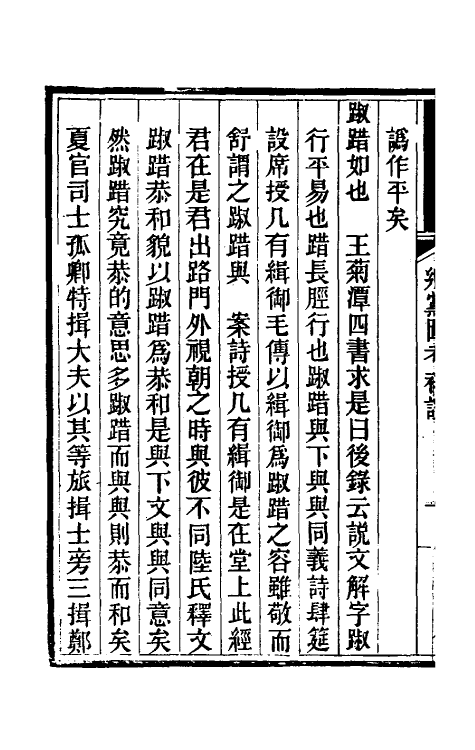 譌作平矣
踧踖如也　王菊潭四書求是曰後錄云説文解字踧
行平易也踖長脛行也踧踖與下與與同義詩肆筵
設席授几有緝御毛傳以緝御爲踧踖之容雖敬而
舒謂之踧踖與　案詩授几有緝御是在堂上此經
君在是君出路門外視朝之時與彼不同陸氏釋文
踧踖恭和貌以踧踖爲恭和是與下文與與同意矣
然踧踖究竟恭的意思多踧踖而與與則恭而和矣
夏官司士孤卿特揖大夫以其等旅揖士旁三揖鄭